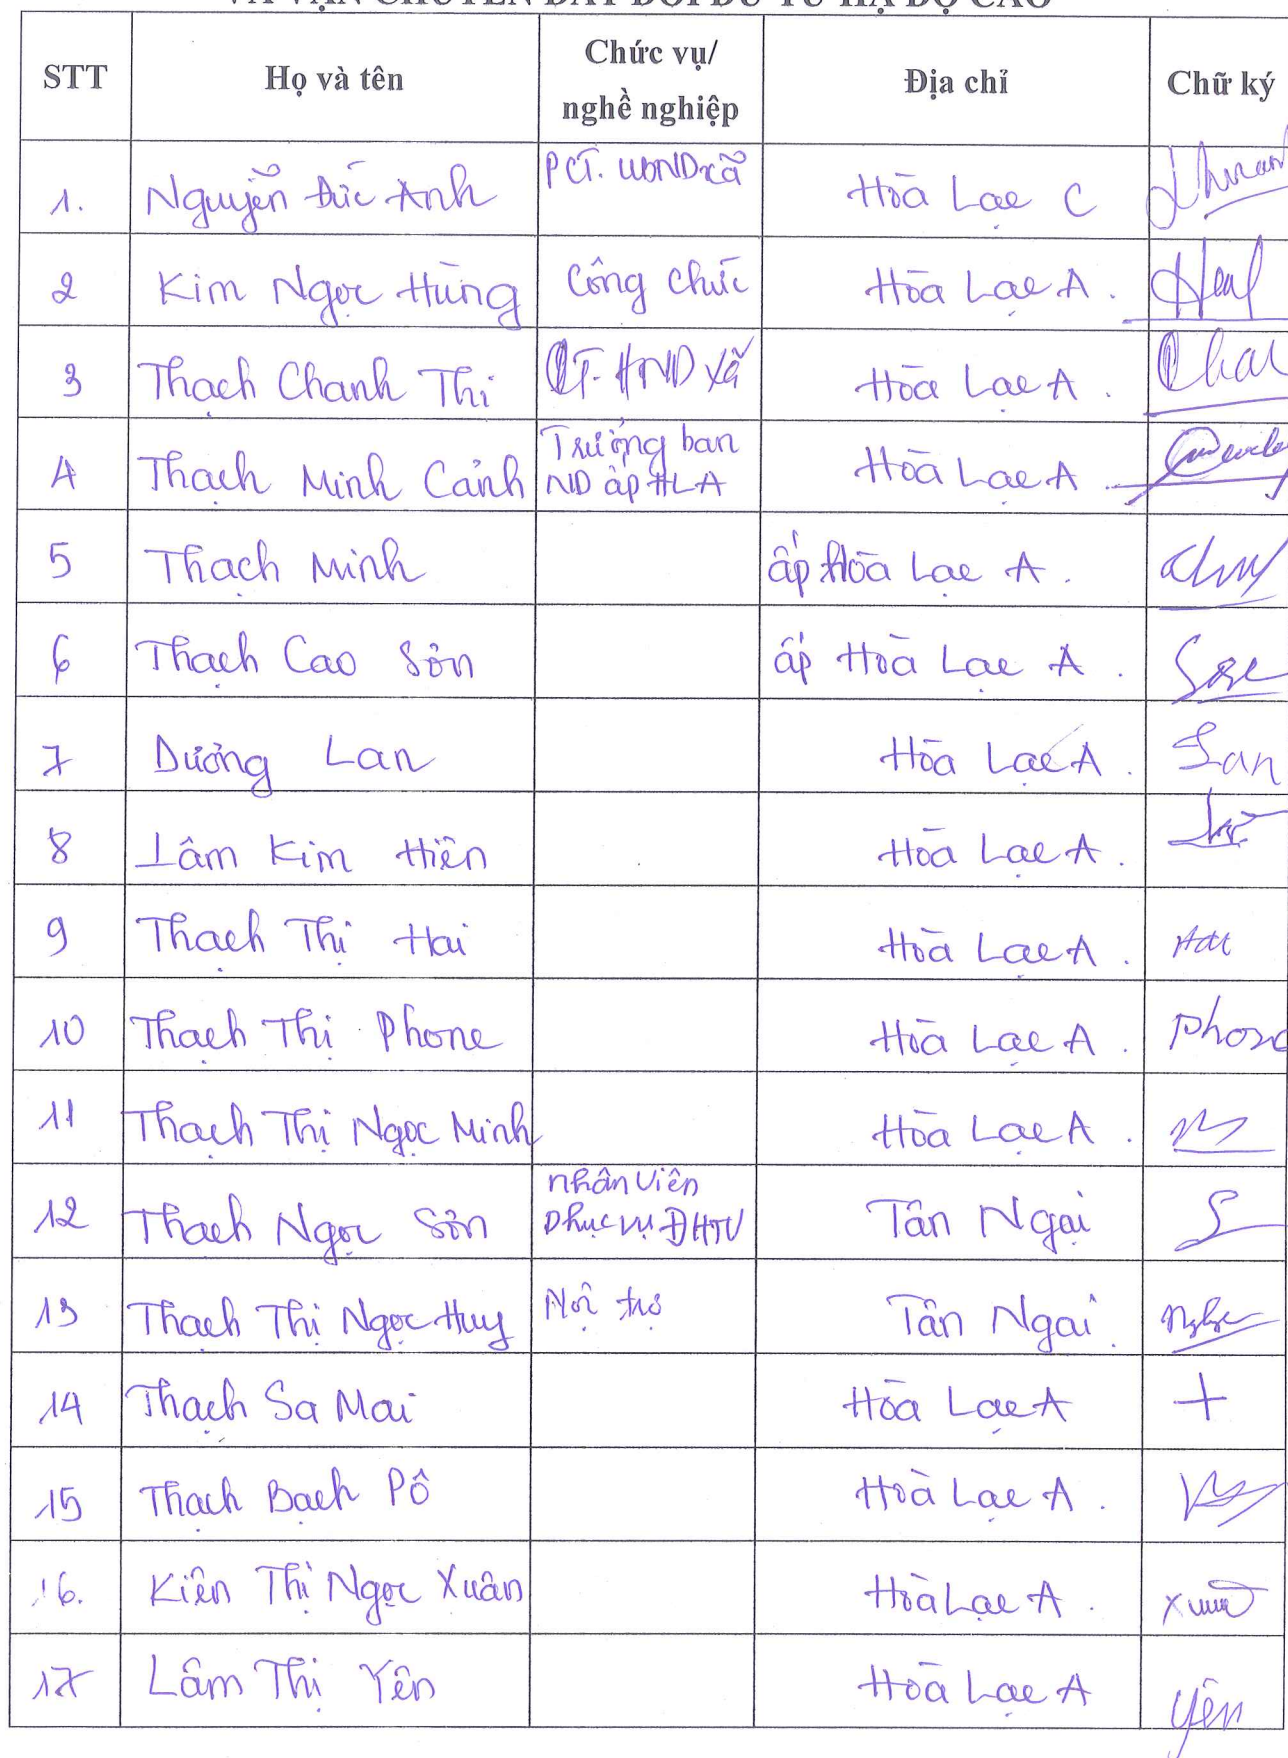 VÀ VẬN CHUYỂN ĐẤT DÔI DƯ TỪ HẠ ĐỘ CAO
STT Họ và tên Chức vụ/ nghề nghiệp Địa chỉ Chữ ký
1. Nguyễn Đức Anh PCT. UBND xã Hòa Lạc C
2 Kim Ngọc Hùng Công chức Hòa Lạc A.
3 Thạch Chanh Thi CT. HND xã Hòa Lạc A.
4 Thạch Minh Cảnh Trưởng ban ND ấp HLA Hòa Lạc A.
5 Thạch Minh ấp Hòa Lạc A.
6 Thạch Cao Sơn ấp Hòa Lạc A.
7 Dương Lan Hòa Lạc A. Lan
8 Lâm Kim Hiên Hòa Lạc A.
9 Thạch Thị Hai Hòa Lạc A.
10 Thạch Thị Phone Hòa Lạc A. Phone
11 Thạch Thị Ngọc Minh Hòa Lạc A.
12 Thạch Ngọc Sơn nhân viên phục vụ ĐHTV Tân Ngại
13 Thạch Thị Ngọc Huy Nội trợ Tân Ngại.
14 Thạch Sa Mai Hòa Lạc A +
15 Thạch Bạch Pô Hòa Lạc A.
16. Kiên Thị Ngọc Xuân Hòa Lạc A.
17 Lâm Thị Yên Hòa Lạc A Yên